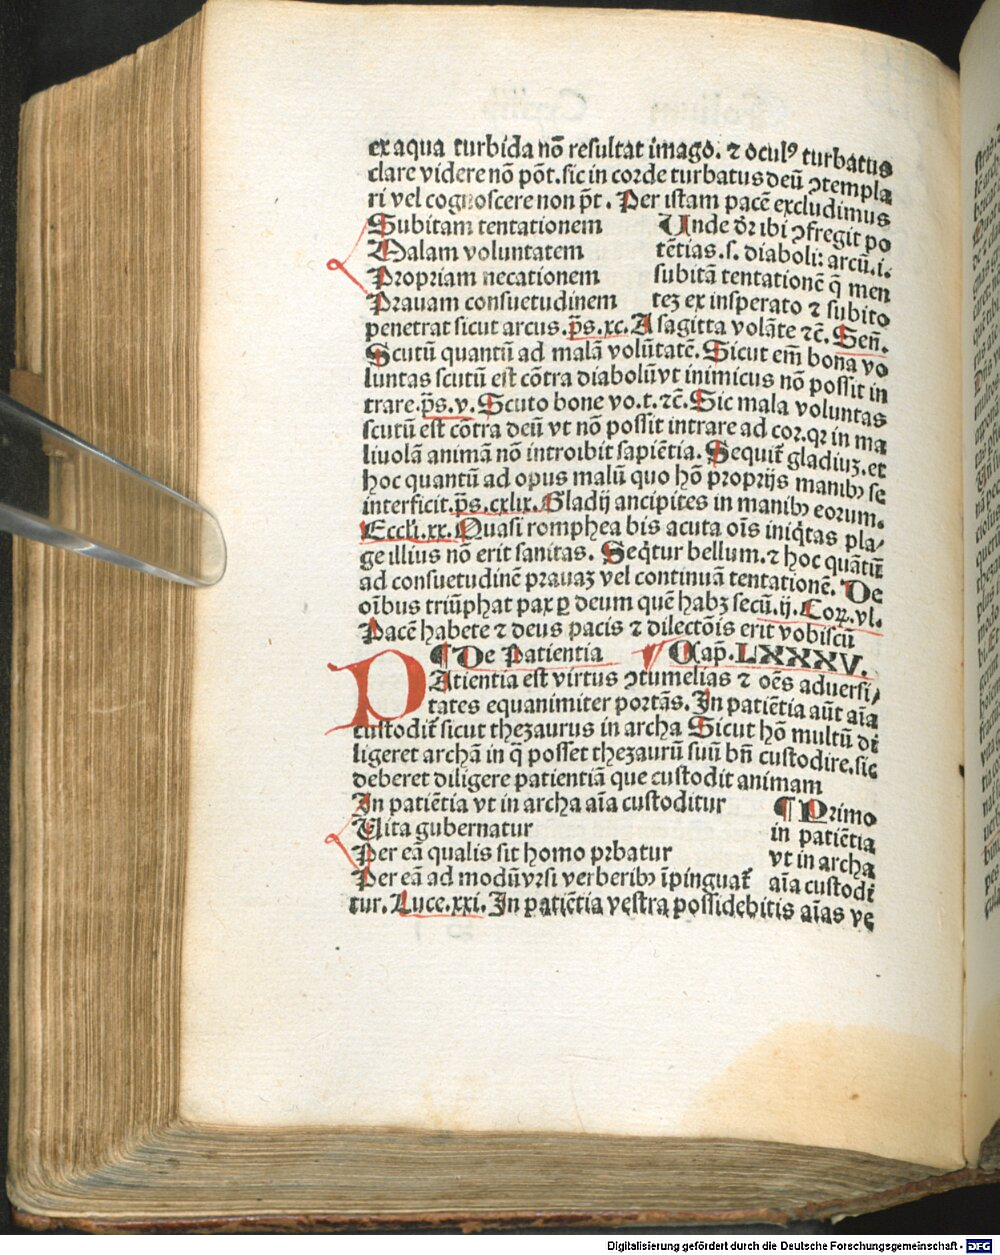 ex aqua turbida nõ resultat imago. ⁊ oculꝰ turbatus
clare videre nõ põt. sic in corde turbatus deũ ꝯtempla
ri vel cognoscere non p̃t. Per istam pacẽ excludimus
Subitam tentationem Unde dꝛ̃ ibi ꝯfregit po
Malam voluntatem tẽtias .s. diaboli: arcũ .i.
Propriam necationem subitã tentationẽ q̃ men
Prauam consuetudinem tez ex insperato ⁊ subito
penetrat sicut arcus. p̃s. xc. A sagitta volãte ⁊c̃. Señ.
Scutũ quantũ ad malã volũtatẽ. Sicut em̃ bona vo
luntas scutũ est cõtra diabolũ vt inimicus nõ possit in
trare. p̃s. v. Scuto bone vo. t. ⁊c̃. Sic mala voluntas
scutũ est cõtra deũ vt nõ possit intrare ad cor. qꝛ in ma
liuolã animã nõ introibit sapiẽtia. Sequit᷑ gladiuȝ. et
hoc quantũ ad opus malũ quo hõ proprijs manibꝰ se
interficit. p̃s. cxlix. Gladij ancipites in manibꝰ eorum.
Eccli. xx. Quasi romphea bis acuta oĩs iniq̃tas pla⸗
ge illius nõ erit sanitas. Seq̃tur bellum. ⁊ hoc quãtũ
ad consuetudinẽ prauaȝ vel continuã tentationẽ. De
oĩbus triũphat pax ꝑ deum quẽ habȝ secũ. ij. Coꝝ. vl.
Pacẽ habete ⁊ deus pacis ⁊ dilectõis erit vobiscũ
¶ De Patientia ¶ Cap̃. LXXXV.
PAtientia est virtus ꝯtumelias ⁊ oẽs aduersi⸗
tates equanimiter portãs. In patiẽtia aũt aĩa
custodit᷑ sicut thezaurus in archa Sicut hõ multũ di
ligeret archã in q̃ posset thezaurũ suũ bñ custodire. sic
deberet diligere patientiã que custodit animam
In patiẽtia vt in archa aĩa custoditur ¶ Primo
Vita gubernatur in patiẽtia
Per eã qualis sit homo prbatur vt in archa
Per eã ad modũ vrsi verberibꝰ ĩpinguat᷑ aĩa custodi
tur. Luce. xxi. In patiẽtia vestra possidebitis aĩas ve
Digitalisierung gefördert durch die Deutsche Forschungsgemeinschaft - DFG